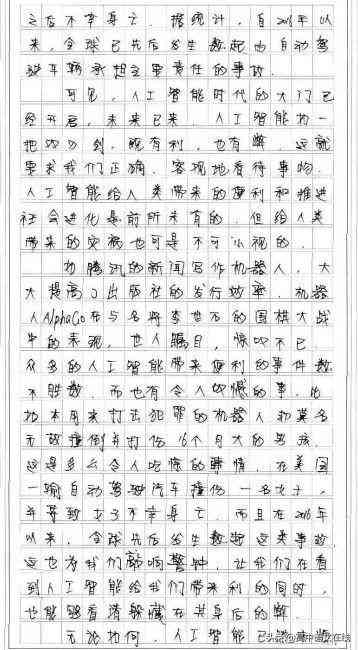 之后不幸身亡。据统计,自2016年以
来,全球已先后发生数起由自动驾
驶车辆承担主要责任的事故。
可见,人工智能时代的大门已
经开启,未来已来。人工智能如一
把双刃剑,既有利,也有弊,这就
要求我们正确、客观地看待事物。
人工智能给人类带来的便利和推进
社会进化是前所未有的,但给人类
带来的灾祸也可是不可小视的。
如腾讯的新闻写作机器人,大
大提高了出版社的发行效率,机器
人AlphaGo在与名将李世石的围棋大战
中的表现,世人瞩目,惊叹不已
众多的人工智能带来便利的事件数
不胜数。而也有令人叹憾的事,比
如本用来打击犯罪的机器人却莫名
无故撞倒并打伤16个月大的男孩,
这是多么令人吃惊的事情。在美国
一辆自动驾驶汽车撞伤一名女子,
并导致女子不幸身亡。而且在2016年
以来,全球先后发生数起这类事故,
这也为我们敲响警钟,让我们在看
到人工智能给我们带来利的同时,
也能够看清躲藏在其身后的弊。
无论如何,人工智能已
头条@高中语文在线